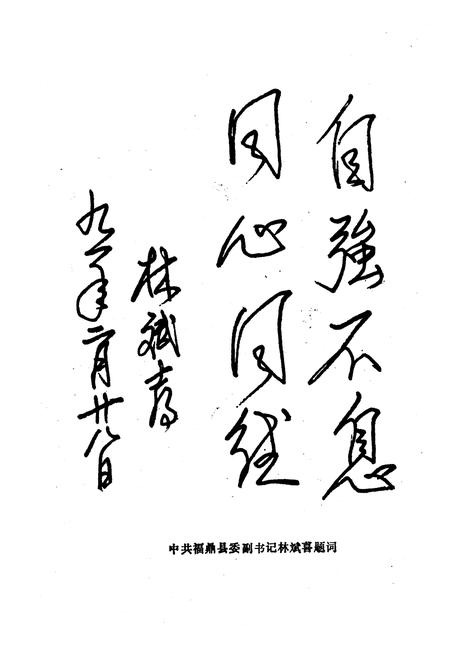 自強不息
同心同德
林斌喜
九一年二月廿八日
中共福鼎县委副书记林斌喜题词